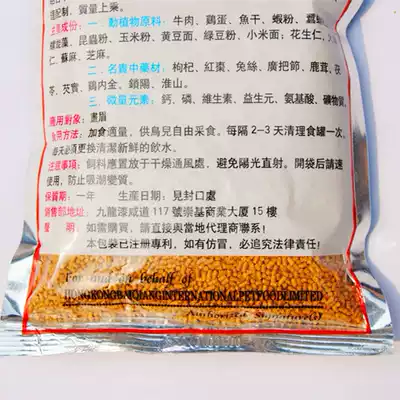 理配制，質量上乘。
主要成份：一、動植物原料：牛肉、雞蛋、魚干、蝦粉、蠶蛹
螺旋藻、昆蟲粉、玉米粉、黄豆面、綠豆粉、小米面；花生仁、
仁、蘇麻、芝麻。
二、名貴中藥材：枸杞、紅棗、兔絲、廣把節、鹿茸、茯
苓、芡實、鷄内金、鎖陽、淮山。
三、微量元素：鈣、磷、維生素、益生元、氨基酸、礦物質
適用對象：畫眉
食用方法：加食適量，供鳥兒自由采食。每隔2-3天清理食罐一次，
每天必須更换清潔新鮮的飲水。
注意事項：飼料應置放于干燥通風處，避免陽光直射。開袋后請速
使用，防止吸潮變質。
保質期：一年 生産日期：見封口處
銷售部地址：九龍漆咸道117號崇基商業大厦15樓
聲 明：如需購買，請直接與當地代理商聯系！
本包裝已注册專利，如有仿冒，必追究法律責任！
For and on behalf of
INTERNATIONAL PET FOOD LIMITED
Authorized Signature(s)